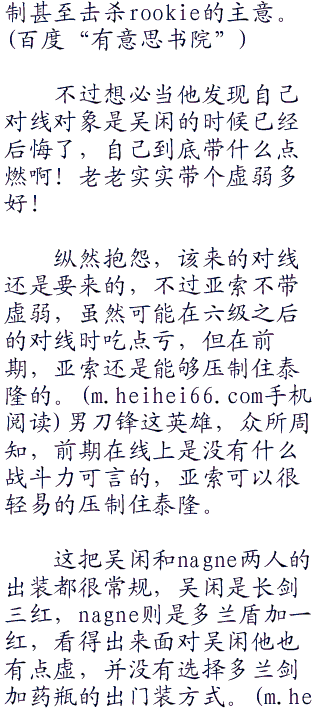 制甚至击杀rookie的主意。
(百度“有意思书院”)
不过想必当他发现自己
对线对象是吴闲的时候已经
后悔了，自己到底带什么点
燃啊！老老实实带个虚弱多
好！
纵然抱怨，该来的对线
还是要来的，不过亚索不带
虚弱，虽然可能在六级之后
的对线时吃点亏，但在前
期，亚索还是能够压制住泰
隆的。(m.heihei66.com手机
阅读)男刀锋这英雄，众所周
知，前期在线上是没有什么
战斗力可言的，亚索可以很
轻易的压制住泰隆。
这把吴闲和nagne两人的
出装都很常规，吴闲是长剑
三红，nagne则是多兰盾加一
红，看得出来面对吴闲他也
有点虚，并没有选择多兰剑
加药瓶的出门装方式。(m.he